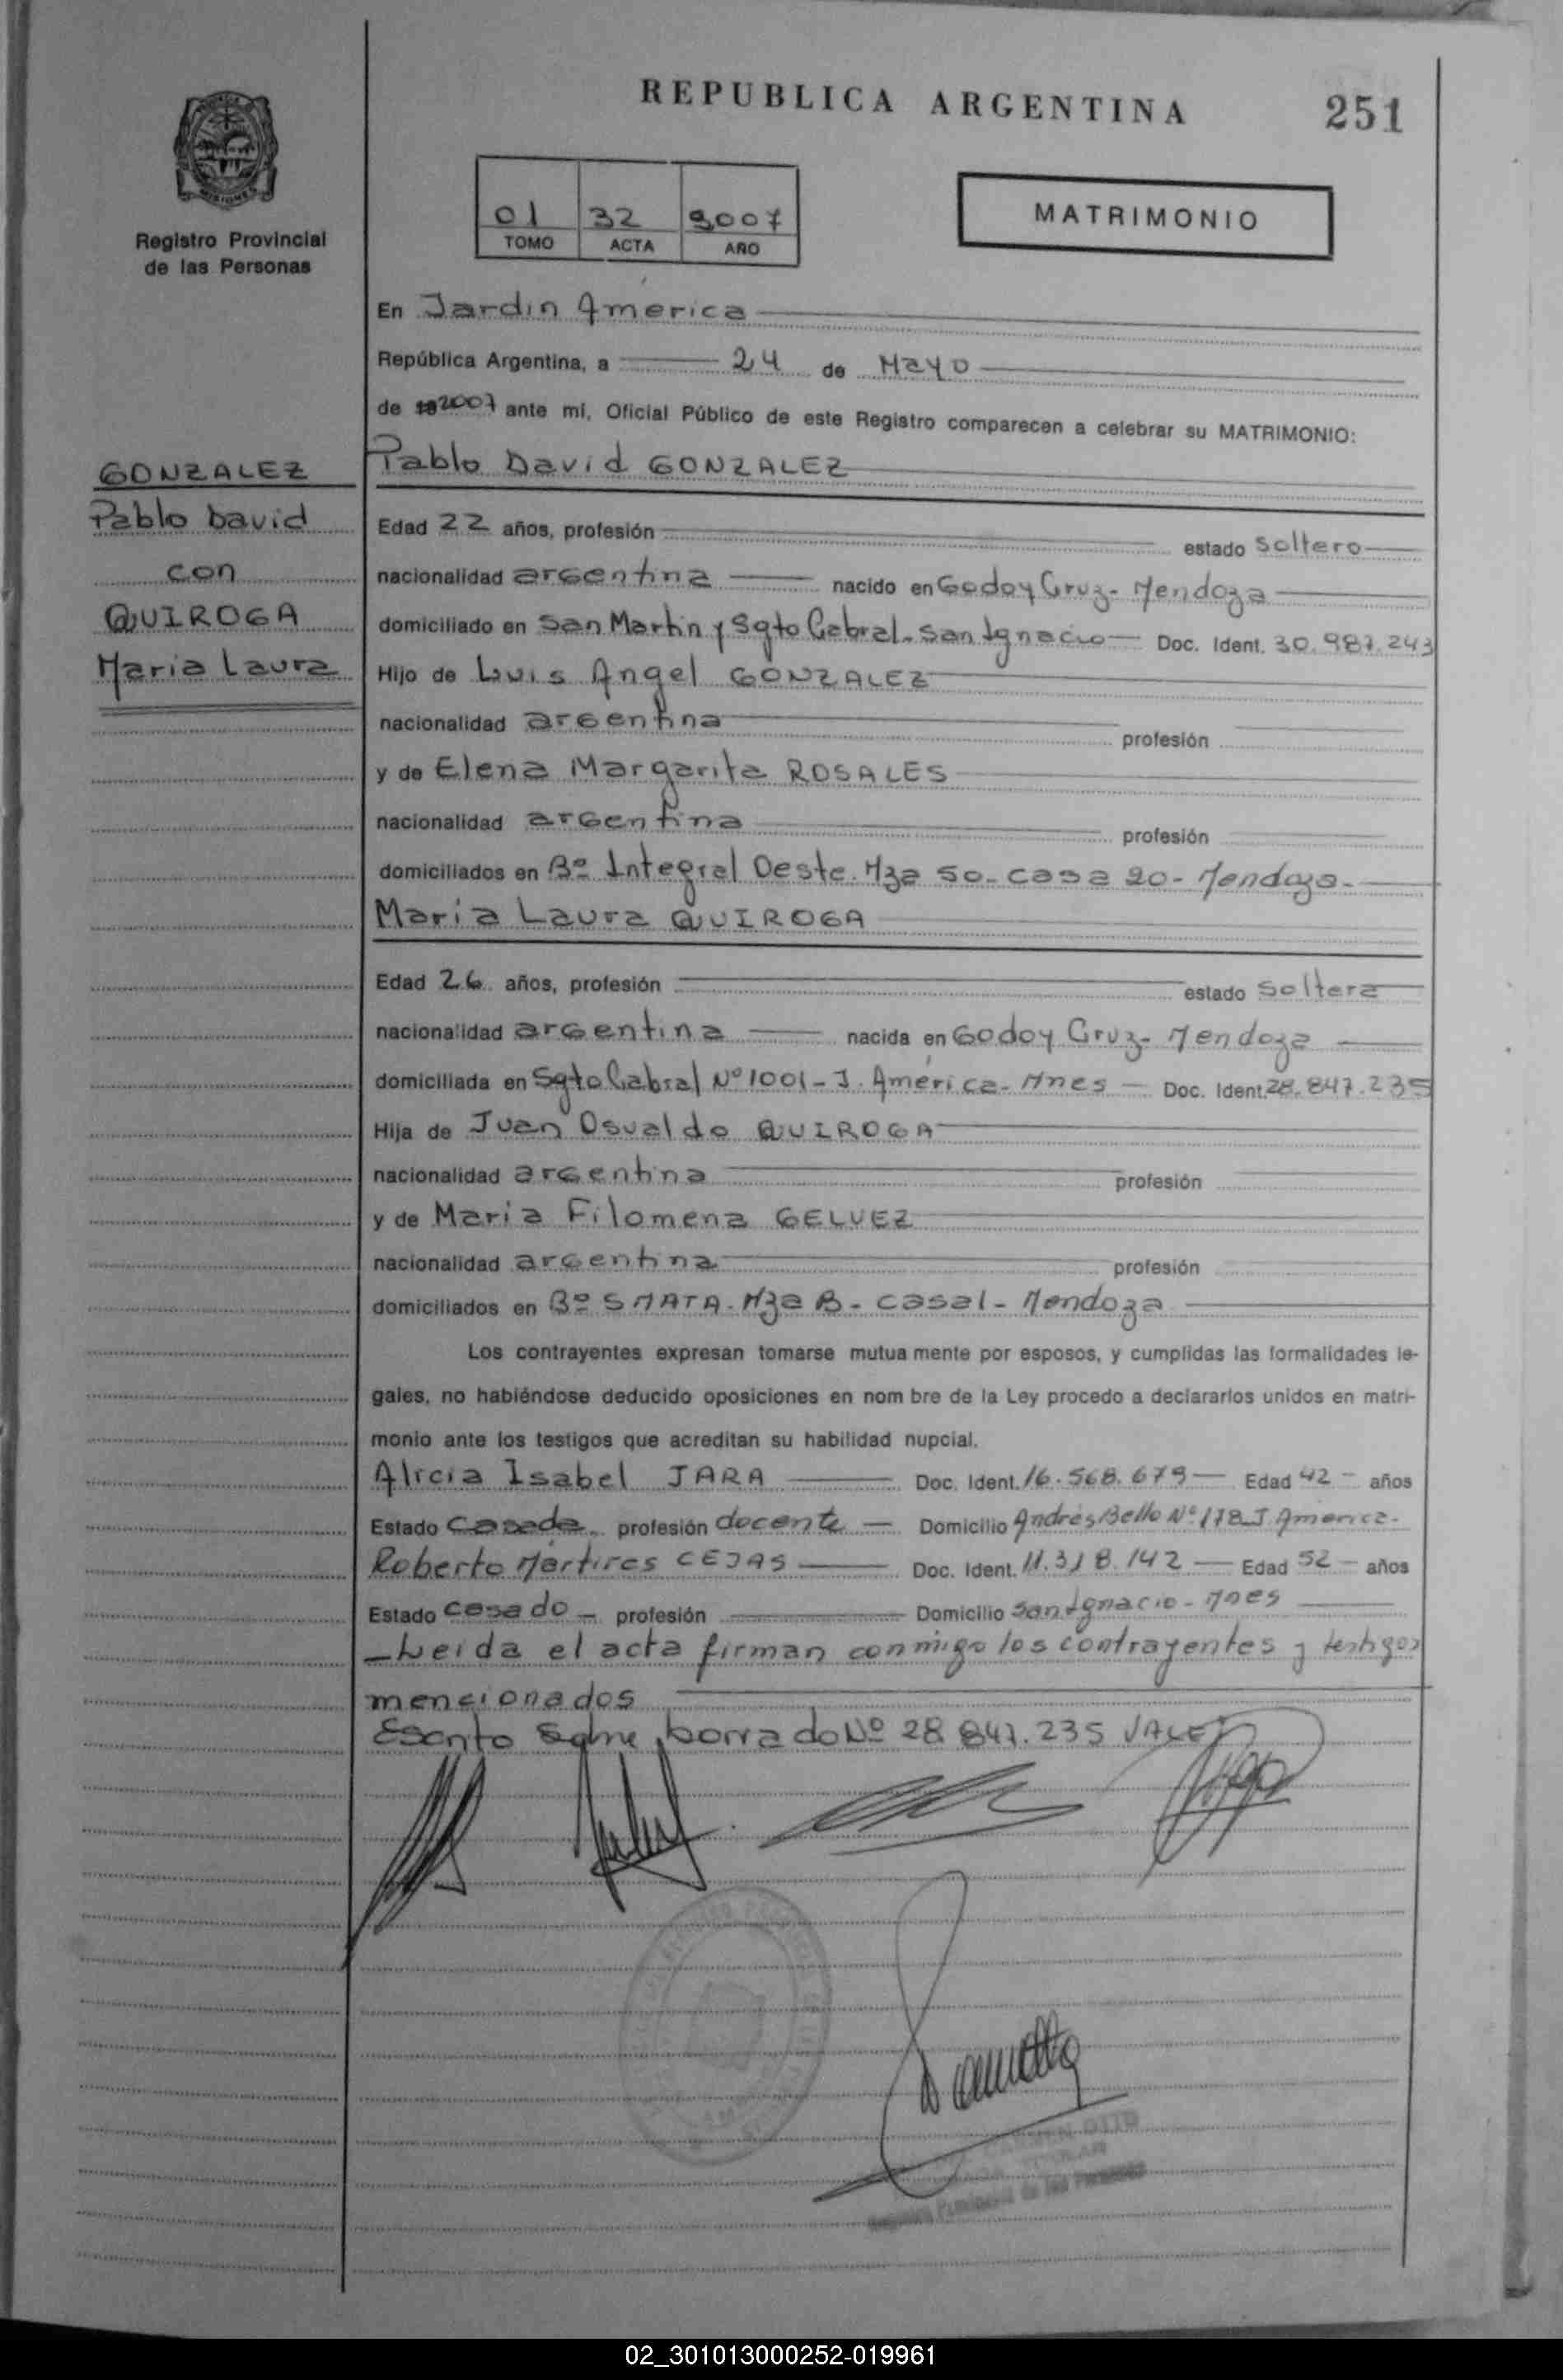 REPUBLICA ARGENTINA
251
Registro Provincial
de las Personas
01 32 2007
TOMO ACTA AÑO
MATRIMONIO
En Jardin America
República Argentina, a 24 de Mayo
de 2007 ante mí, Oficial Público de este Registro comparecen a celebrar su MATRIMONIO:
GONZALEZ
Pablo David
con
QUIROGA
Maria Laura
Pablo David GONZALEZ
Edad 22 años, profesión estado soltero
nacionalidad argentina nacido en Godoy Cruz - Mendoza
domiciliado en San Martin y Sgto Cabral - San Ignacio Doc. Ident. 30.987.243
Hijo de Luis Angel GONZALEZ
nacionalidad argentina profesión
y de Elena Margarita ROSALES
nacionalidad argentina profesión
domiciliados en Bº Integral Oeste. Mza 50 - casa 20 - Mendoza -
Maria Laura QUIROGA
Edad 26 años, profesión estado soltera
nacionalidad argentina nacida en Godoy Cruz - Mendoza
domiciliada en Sgto Cabral Nº 1001 - J. América - Mnes Doc. Ident. 28.847.235
Hija de Juan Osvaldo QUIROGA
nacionalidad argentina profesión
y de Maria Filomena GELVEZ
nacionalidad argentina profesión
domiciliados en Bº SMATA - Mza B - casa 1 - Mendoza
Los contrayentes expresan tomarse mutua mente por esposos, y cumplidas las formalidades le-
gales, no habiéndose deducido oposiciones en nom bre de la Ley procedo a declararlos unidos en matri-
monio ante los testigos que acreditan su habilidad nupcial.
Alicia Isabel JARA Doc. Ident. 16.568.679 Edad 42 años
Estado Casada profesión docente Domicilio Andrés Bello Nº 178 J. America -
Roberto Mártires CEJAS Doc. Ident. 11.318.142 Edad 52 años
Estado casado profesión Domicilio San Ignacio - Mnes
Leida el acta firman conmigo los contrayentes y testigos
mencionados
Escrito sobre borrado Nº 28.847.235 VALE
Registro Provincial de las Personas
02_301013000252-019961